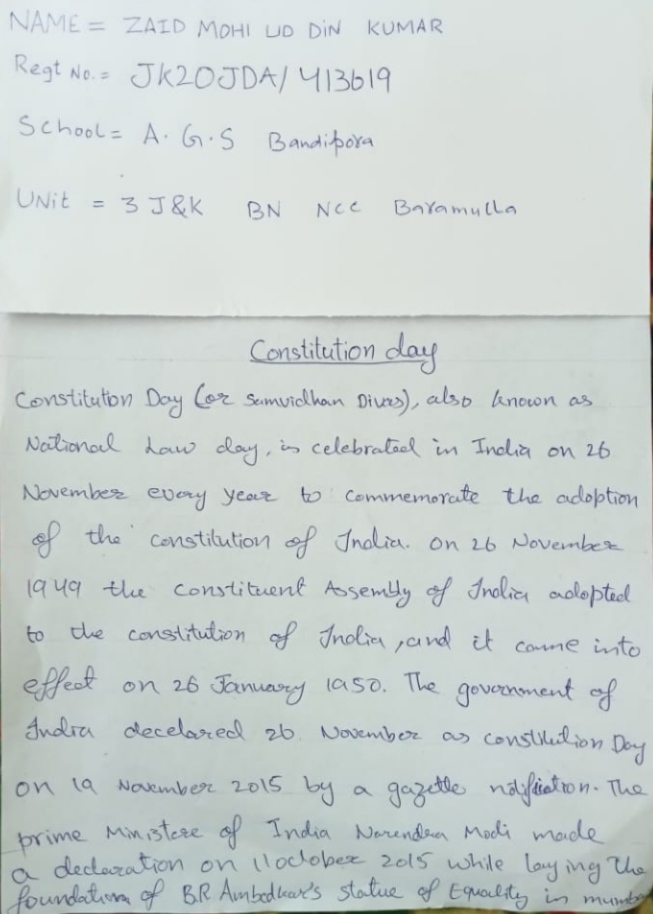 NAME = ZAID MOHI UD DIN KUMAR
Regt No. = JK20JDA/413619
School = A.G.S Bandipora
UNit = 3 J&K BN NCC Baramulla
Constitution day
Constitution Day (or Samvidhan Divas), also known as
National Law day, is celebrated in India on 26
November every year to commemorate the adoption
of the constitution of India. on 26 November
1949 the Constituent Assembly of India adopted
to the constitution of India, and it came into
effect on 26 January 1950. The government of
India decelared 26 November as constitution Day
on 19 November 2015 by a gazette notification. The
prime Ministere of India Narendra Modi made
a declaration on 11 october 2015 while laying the
foundation of B.R Ambedkar's statue of Equality in mumbai